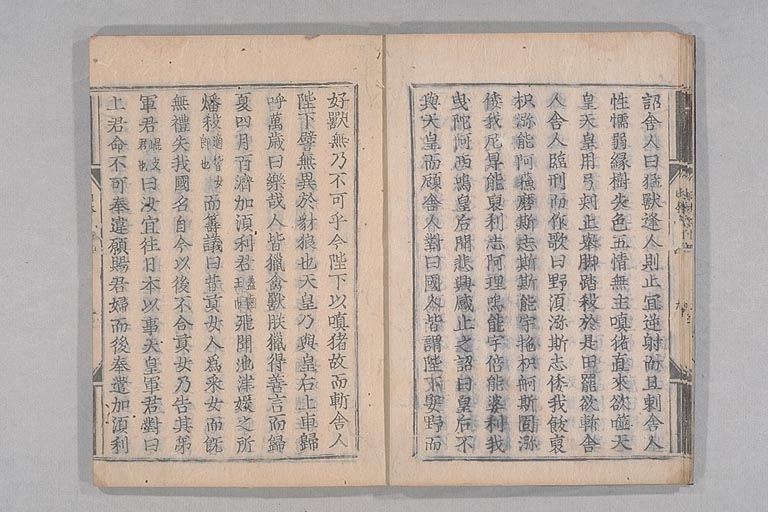 詔舍人曰猛獸逢人則止宜逆射而且刺舍人
性懦弱縁樹失色五情無主嗔猪直來欲噬天
皇天皇用弓刺止舉脚踏殺於是田罷欲斬舍
人舍人臨刑而作歌曰野須瀰斯志倭我飫裒
枳瀰能阿蘇磨斯志斯斯能宇拖枳舸斯固瀰
倭我尼㝵能裒利志阿理嗚能宇倍能婆利我
曳陀阿西嗚皇后聞悲興感止之詔曰皇后不
與天皇而顧舍人對曰國人皆謂陛下安野而
好獸無乃不可乎今陛下以嗔猪故而斬舍人
陛下譬無異於豺狼也天皇乃與皇后上車歸
呼萬歳曰樂哉人皆獵禽獸朕獵得善言而歸
夏四月百濟加須利君盖鹵王也飛聞池津媛之所
燔殺適稽女郎也而籌議曰昔貢女人爲采女而旣
無禮失我國名自今以後不合貢女乃告其弟
軍君崐支君也曰汝宜往日本以事天皇軍君對曰
上君命不可奉違願賜君婦而後奉遣加須利